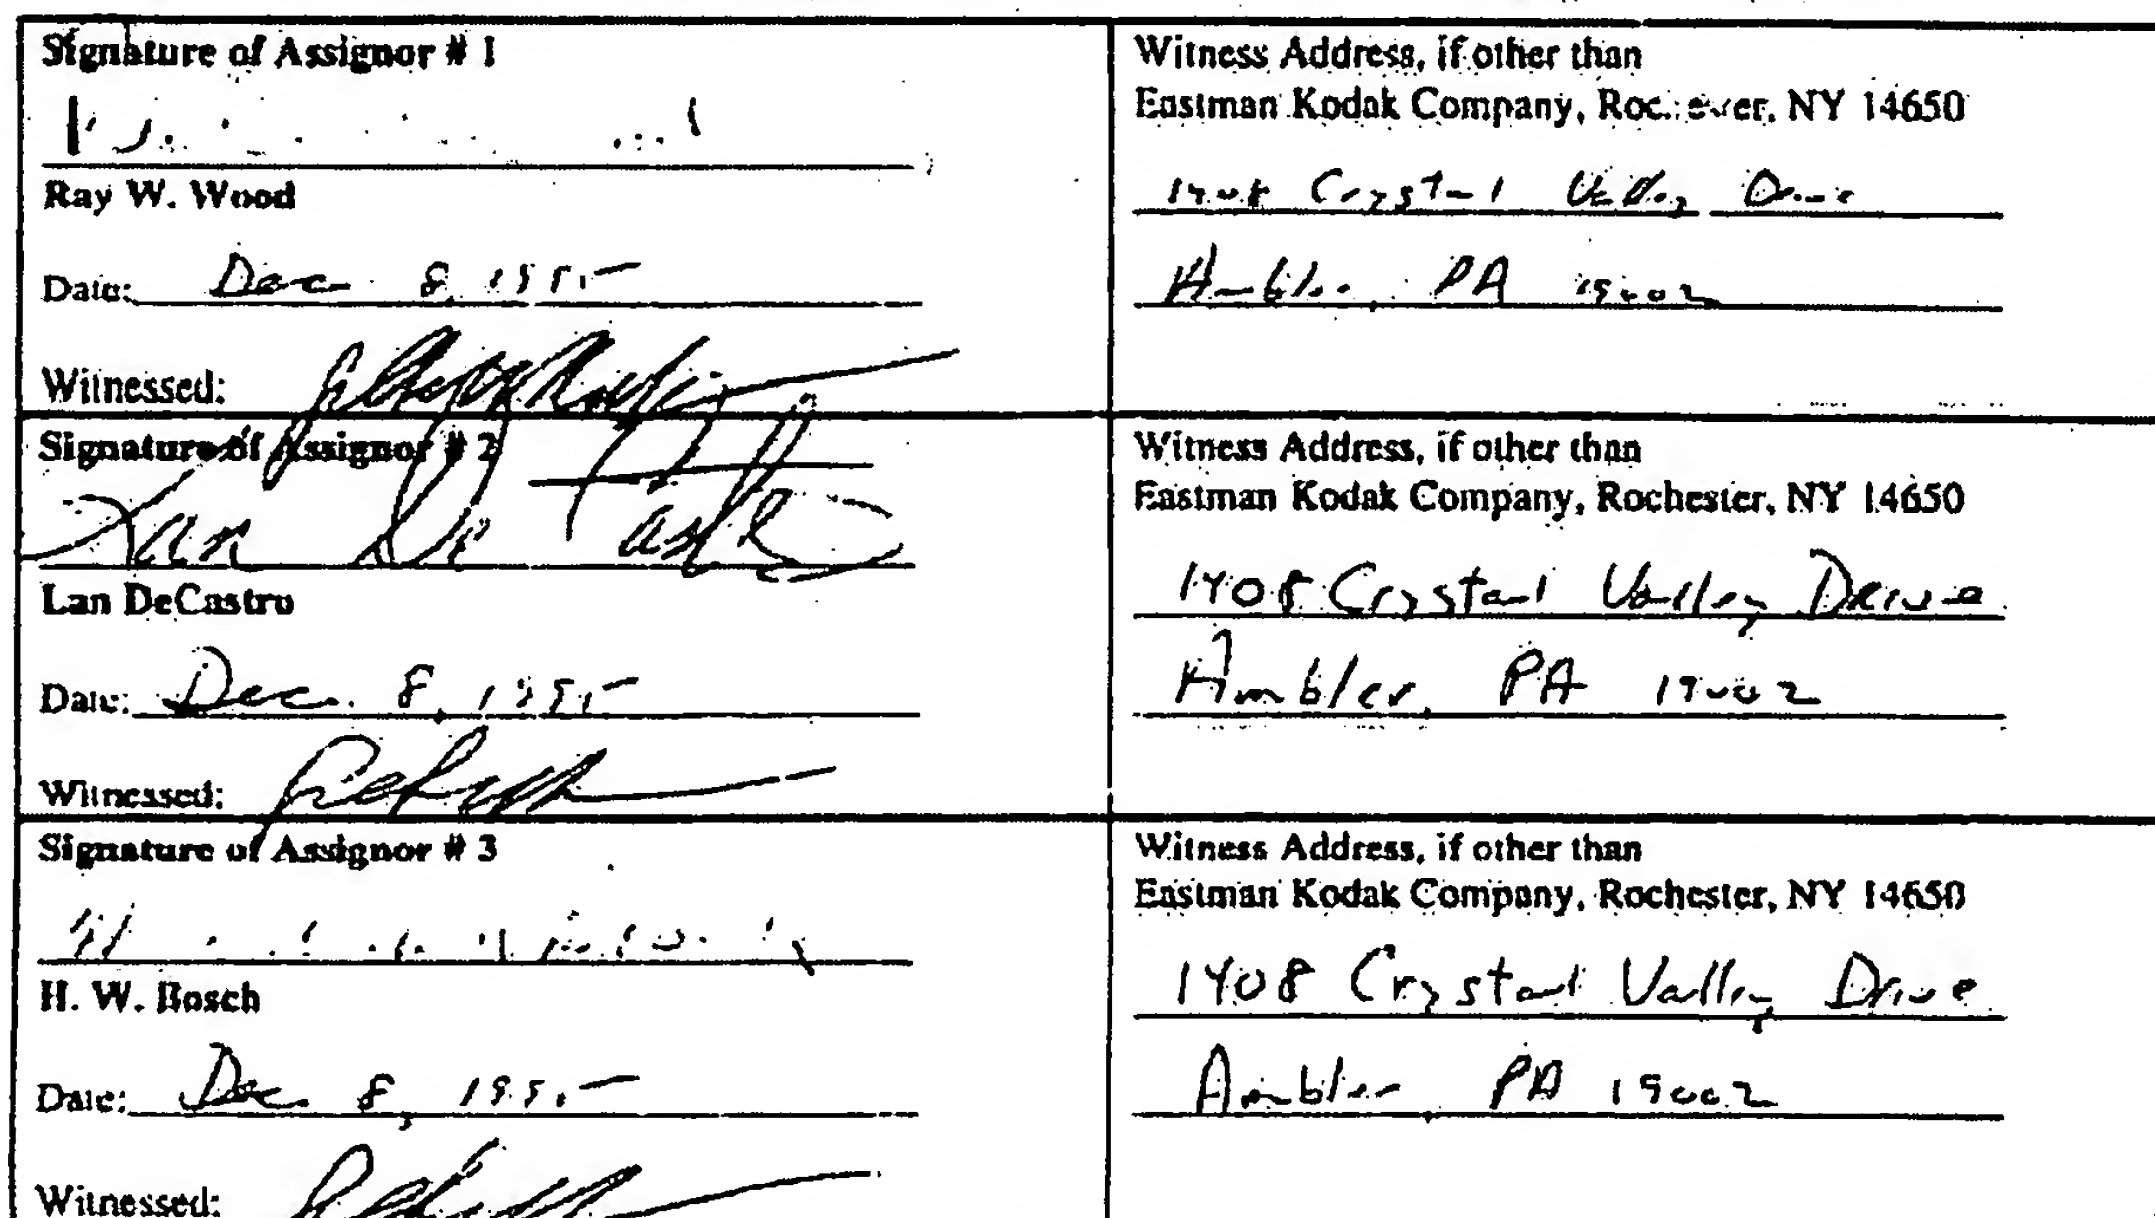 Signature of Assignor # 1
Ray W. Wood
Date: Dec 8, 1995
Witnessed:
Witness Address, if other than
Eastman Kodak Company, Rochester, NY 14650
1408 Crystal Valley Drive
Ambler, PA 19002
Signature of Assignor # 2
Lan De Castro
Lan DeCastro
Date: Dec. 8, 1995
Witnessed:
Witness Address, if other than
Eastman Kodak Company, Rochester, NY 14650
1408 Crystal Valley Drive
Ambler, PA 19002
Signature of Assignor # 3
H. W. Bosch
Date: Dec 8, 1995
Witnessed:
Witness Address, if other than
Eastman Kodak Company, Rochester, NY 14650
1408 Crystal Valley Drive
Ambler, PA 19002